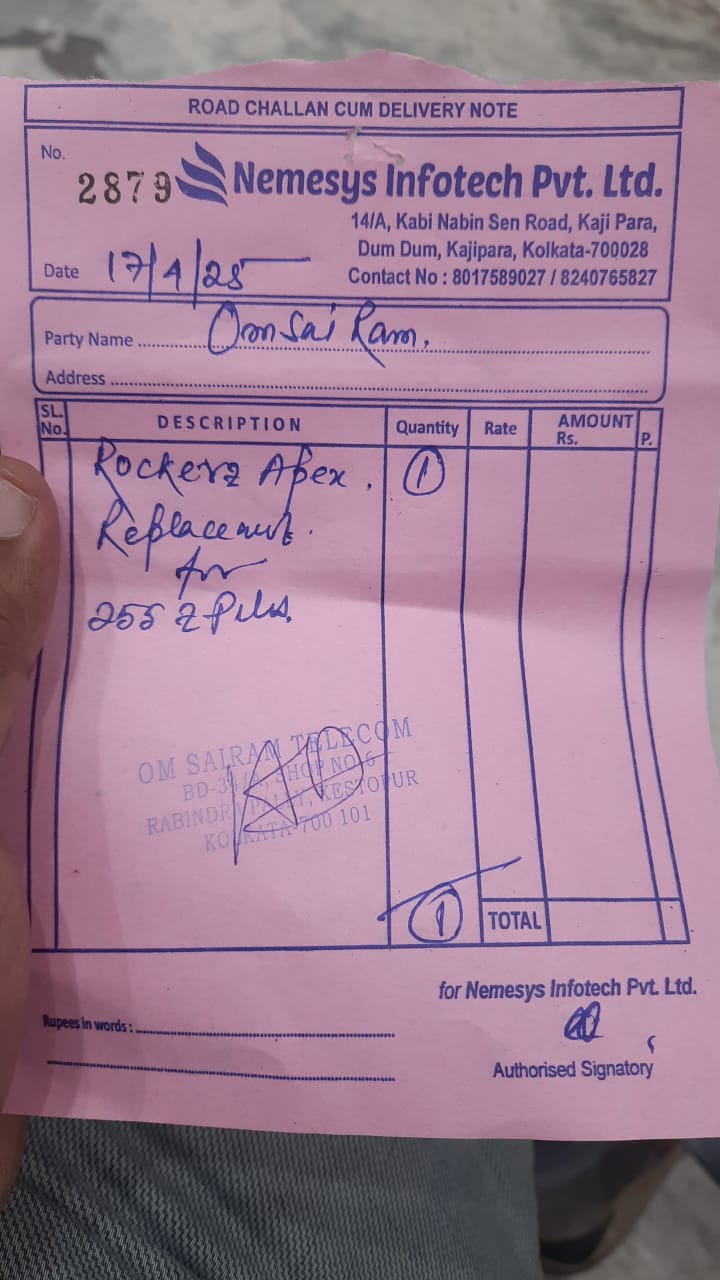 ROAD CHALLAN CUM DELIVERY NOTE
No.
2879
Nemesys Infotech Pvt. Ltd.
14/A, Kabi Nabin Sen Road, Kaji Para,
Dum Dum, Kajipara, Kolkata-700028
Contact No : 8017589027 / 8240765827
Date 17/4/25
Party Name Om Sai Ram,
Address
SL. No. DESCRIPTION Quantity Rate AMOUNT Rs. P.
Rockerz Apex. 1
Replacement.
for
255 Z
OM SAIRAM TELECOM
SHOP NO-6
KESTOPUR
KOLKATA-700 101
1 TOTAL
for Nemesys Infotech Pvt. Ltd.
Rupees in words :
Authorised Signatory